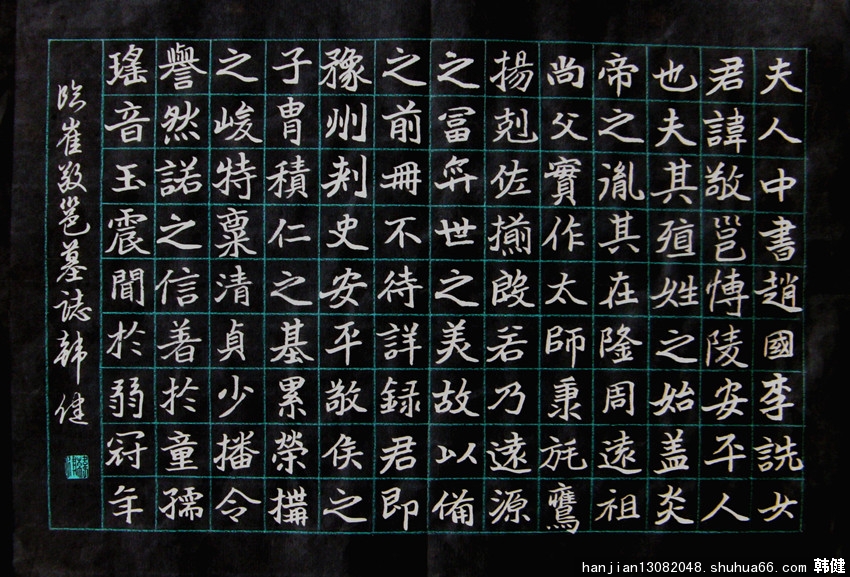 夫人中書趙國李詵女
君諱敬邕博陵安平人
也夫其殖姓之始蓋炎
帝之胤其在隆周遠祖
尚父實作太師秉旄鷹
揚剋佐揃殷若乃遠源
之富弈世之美故以備
之前冊不待詳録君即
豫州刺史安平敬侯之
子胄積仁之基累榮搆
之峻特稟清貞少播令
譽然諾之信著於童孺
瑤音玉震聞於弱冠年
臨崔敬邕墓誌韩健
hanjian13082048.shuhua66.com 韩健